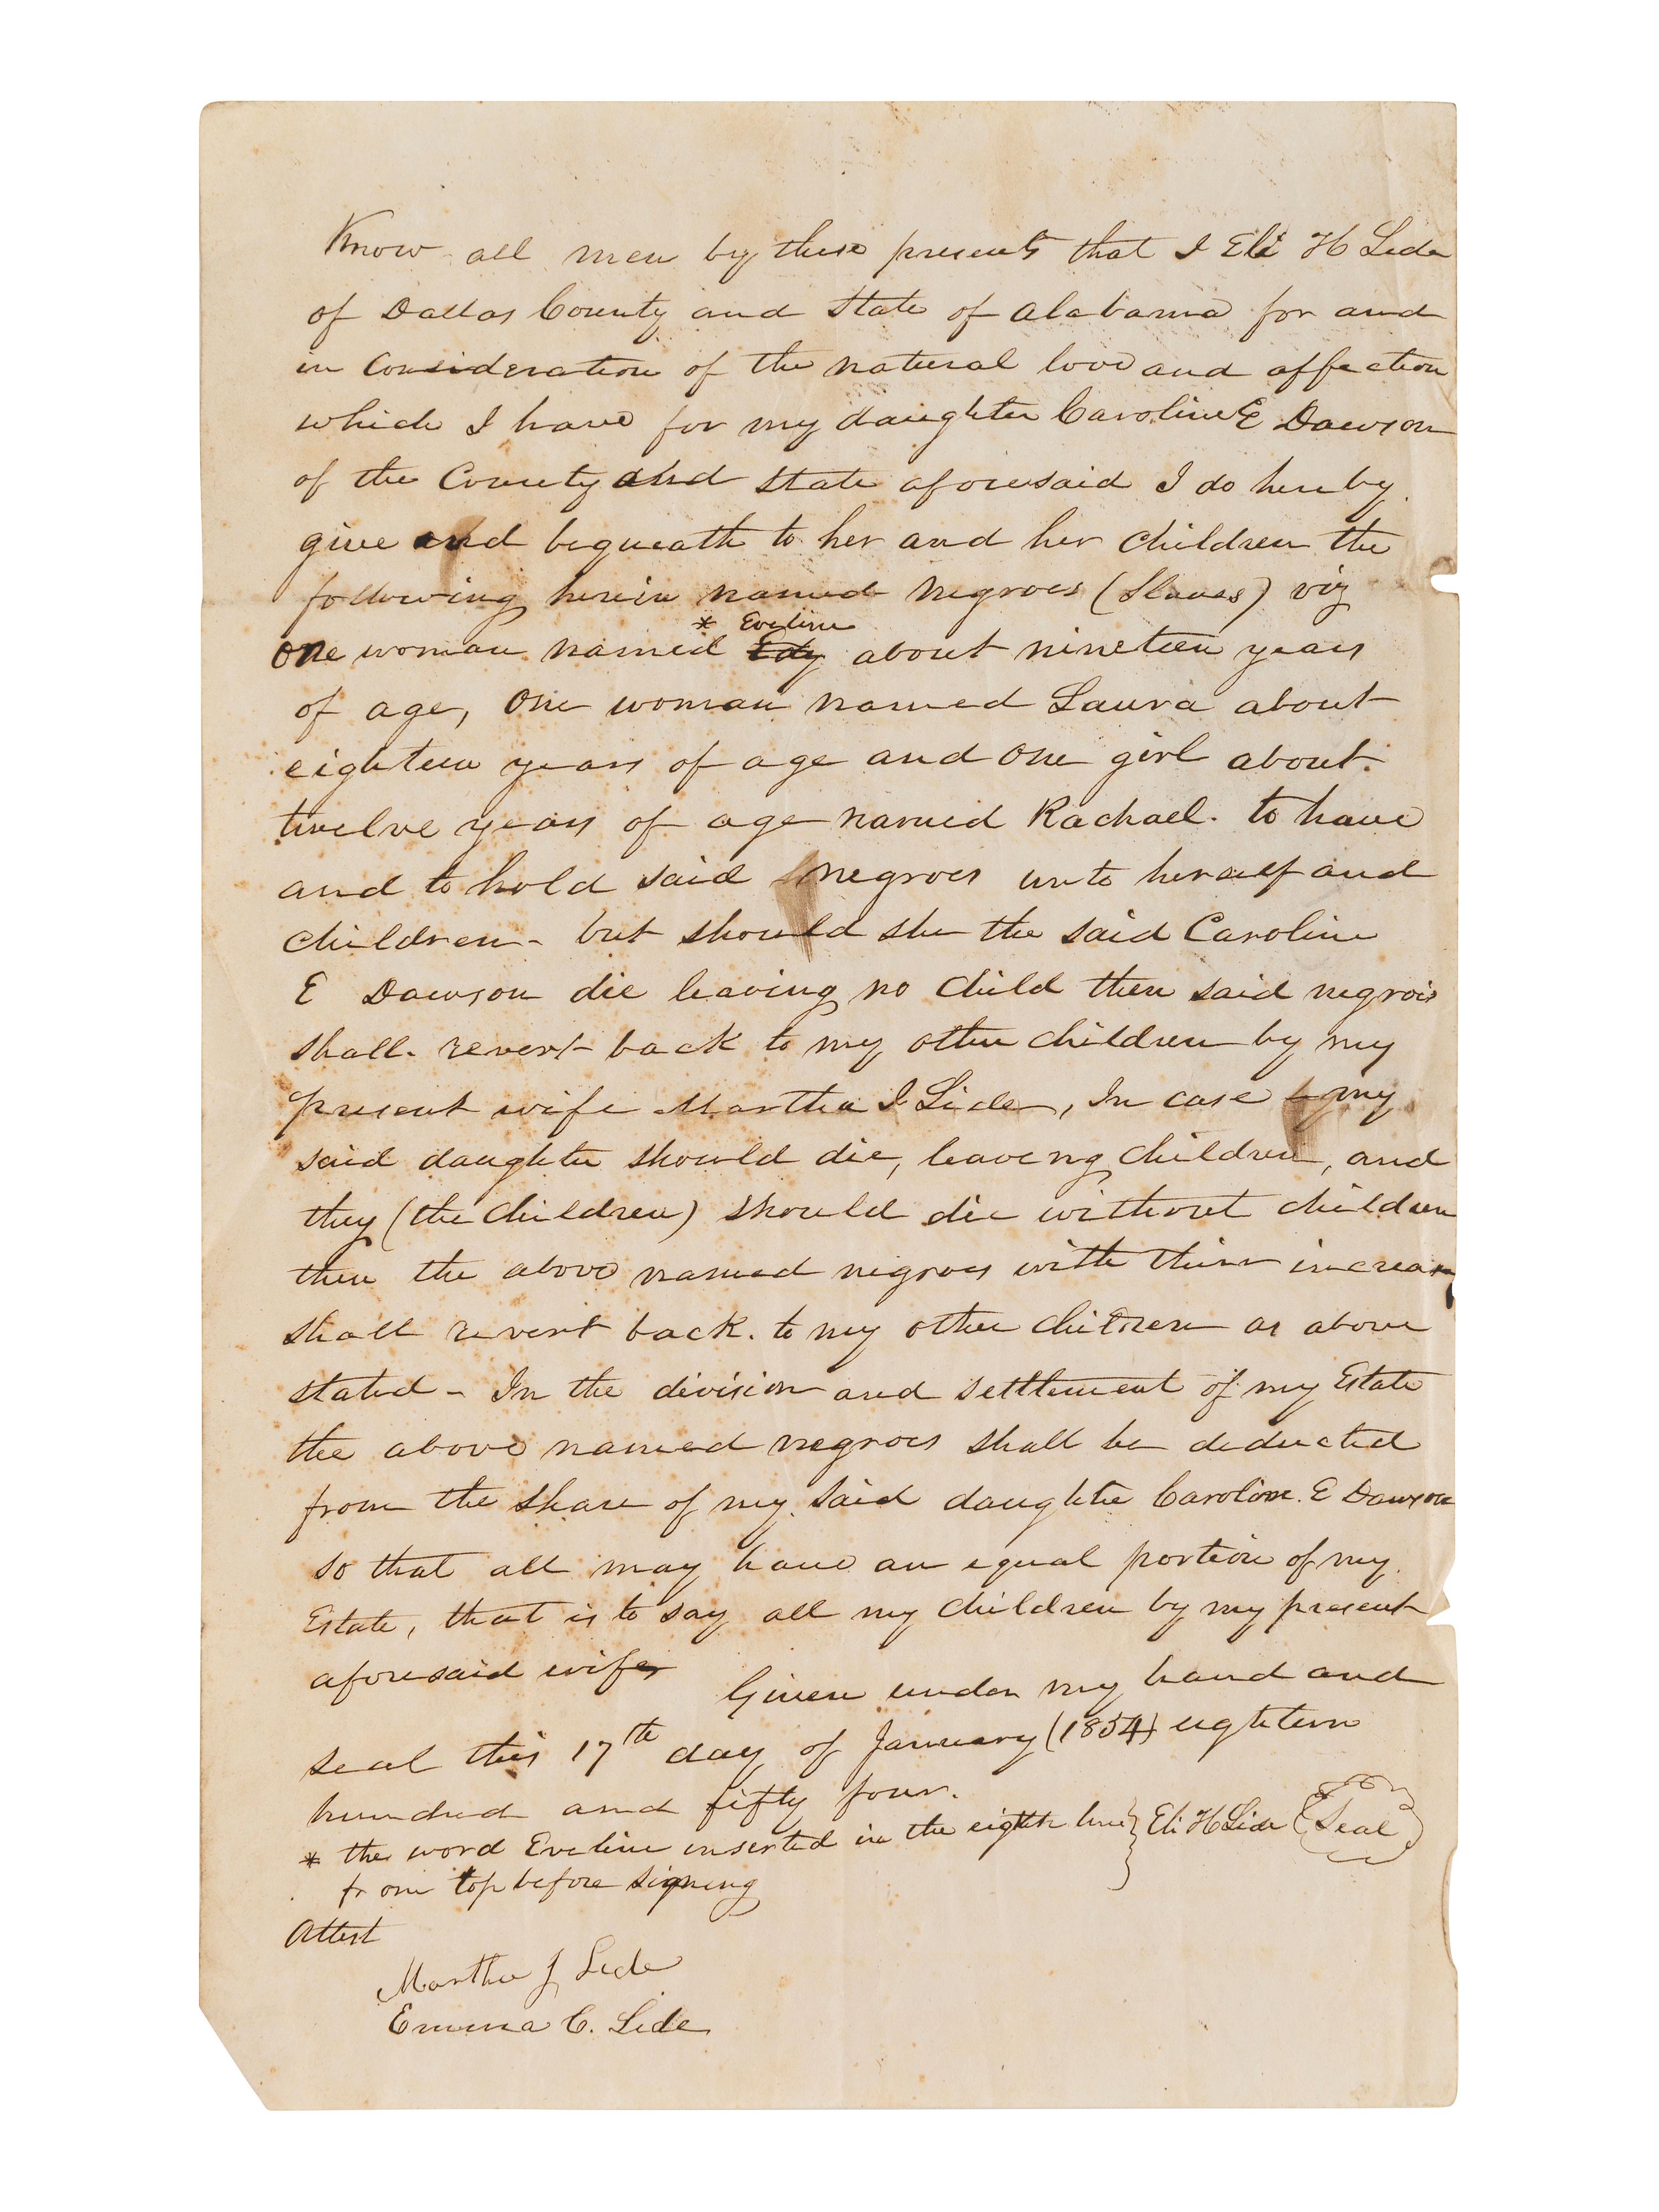 Know all men by these presents that I Eli H Lide
of Dallas County and State of Alabama for and
in Consideration of the natural love and affection
which I have for my daughter Caroline E Dawson
of the County and State aforesaid I do hereby
give and bequeath to her and her children the
following herein named Negroes (Slaves) viz
* Eveline
One woman named Edy about nineteen years
of age, One woman named Laura about
eighteen years of age and one girl about
twelve years of age named Rachael. to have
and to hold said negroes unto herself and
children - but should she the said Caroline
E Dawson die leaving no child then said negroes
shall revert back to my other children by my
present wife Martha J Lide, In case my
said daughter should die, leaveng children, and
they (the children) should die without children
then the above named negroes with their increase
shall revert back. to my other children as above
stated - In the division and settlement of my Estate
the above named negroes shall be deducted
from the share of my said daughter Caroline. E Dawson
so that all may have an equal portion of my
Estate, that is to say all my children by my present
aforesaid wife
Given under my hand and
seal this 17th day of January (1854) eighteen
hundred and fifty four.
* the word Eveline inserted in the eighth line } Eli H Lide (Seal)
from top before signing
Attest
Martha J Lide
Emma C. Lide